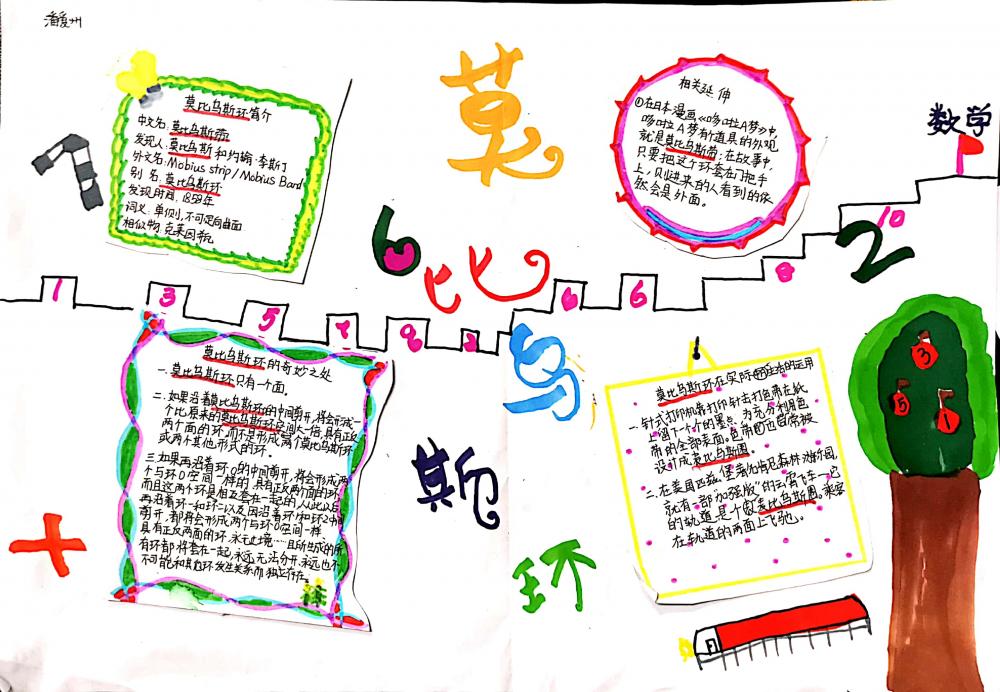 潘爱州
莫
比
乌
斯
环
数学
莫比乌斯环简介
中文名:莫比乌斯带
发现人:莫比乌斯和约翰·李斯丁
外文名:Mobius strip/Mobius Band
别 名:莫比乌斯环
发现时间:1858年
词义:单侧,不可定向曲面
相似物:克莱因瓶
相关延伸
①在日本漫画《哆啦A梦》中,
哆啦A梦有个道具的外观
就是莫比乌斯带;在故事中,
只要把这个环套在门把手
上,则进来的人看到的依
然会是外面。
7
6
2
1
3
5
7
8
2
6
6
8
10
莫比乌斯环的奇妙之处
一.莫比乌斯环只有一个面。
二.如果沿着莫比乌斯环的中间剪开,将会形成一
个比原来的莫比乌斯环空间大一倍,具有正反
两个面的环,而不是形成两个莫比乌斯环
或两个其他形式的环。
三.如果再沿着环0的中间剪开,将会形成两
个与环0空间一样的,具有正反两个面的环,
而且这两个环是相互套在一起的人此以后
再沿着环一和环二以及因沿着环1和环2中间
剪开,都将会形成两个与环0空间一样
具有正反两面的环,永无止境……且所生成的所
有环都将套在一起,永远无法分开,永远也不
可能和其它环发生关系而独立存在。
莫比乌斯环在实际生活的运用
一.针式打印机靠打印针击打色带在纸
上留下一个个的墨点,为充分利用色
带的全部表面,色带也常被
设计成莫比乌斯圈。
二.在美国匹兹堡著名肯尼森林游乐园,
就有一部“加强版”的云霄飞车一它
的轨道是个莫比乌斯圈。乘客
在轨道的两面上飞驰。
3
5
1